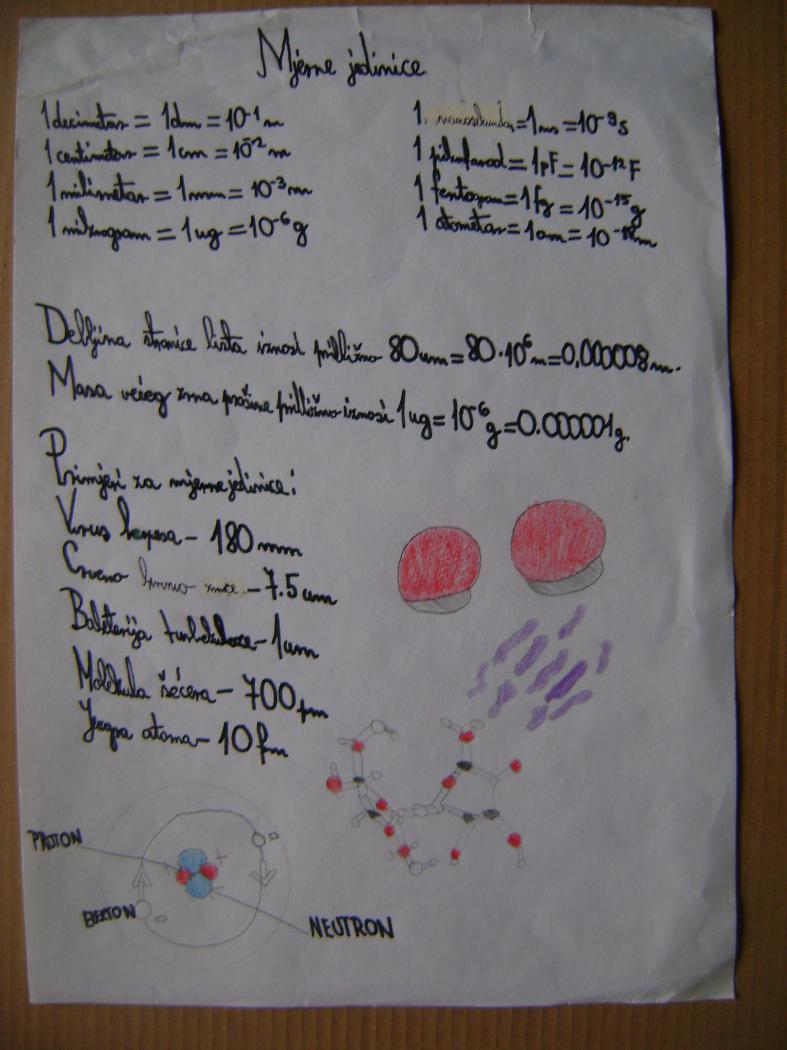 Mjerne jedinice
1 decimetar = 1dm = 10⁻¹ m
1 centimetar = 1cm = 10⁻² m
1 milimetar = 1mm = 10⁻³ m
1 mikrogram = 1ug = 10⁻⁶ g
1 nanosekunda = 1ns = 10⁻⁹ s
1 pikofarad = 1pF = 10⁻¹² F
1 fentogram = 1fg = 10⁻¹⁵ g
1 atometar = 1am = 10⁻¹⁸ m
Debljina stranice lista iznosi približno 80um = 80·10⁶ m = 0,000008m.
Masa većeg zrna prašine približno iznosi 1ug = 10⁻⁶ g = 0.000001g.
Primjeri za mjerne jedinice:
Virus herpesa - 180 nm
Crveno krvno zrnce - 7.5 um
Bakterija tuberkuloze - 1um
Molekula šećera - 700 pm
Jezgra atoma - 10 fm
PROTON
NEUTRON